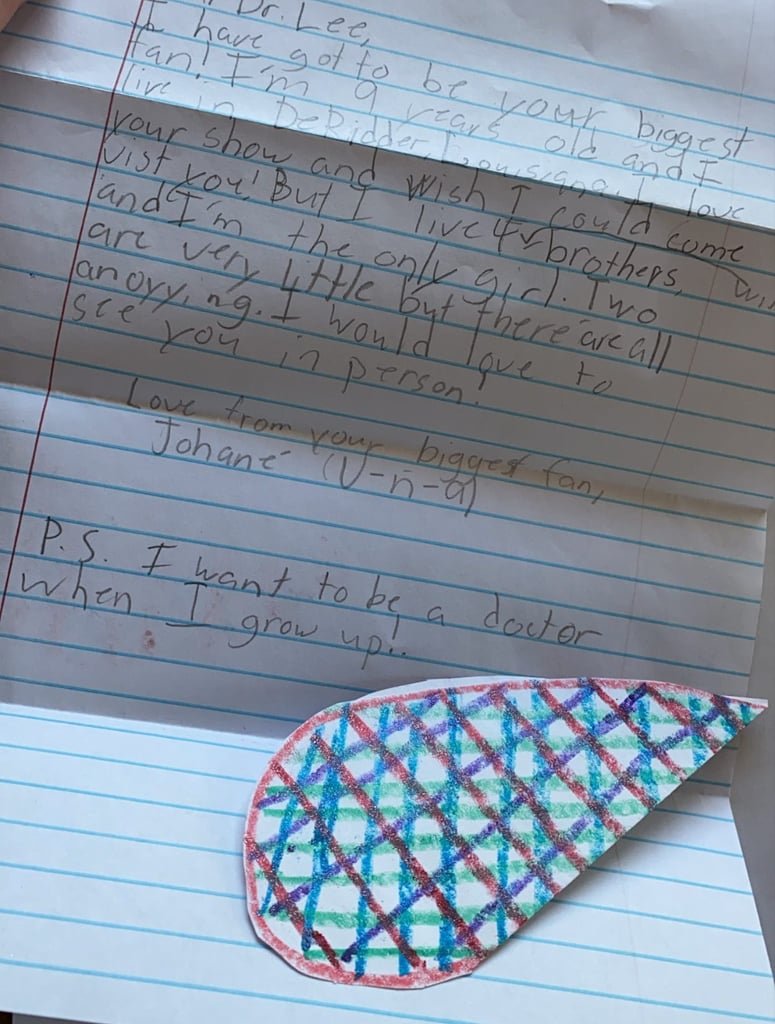 Dr. Lee,
I have got to be your biggest
fan! I'm 9 years old and I
live in DeRidder, Louisiana. I love
your show and wish I could come
vist you! But I live 4 brothers,
and I'm the only girl. Two
are very little but there are all
anoyying. I would love to
see you in person!
Love from your biggest fan,
Johané (U-n-a)
P.S. I want to be a doctor
when I grow up!!